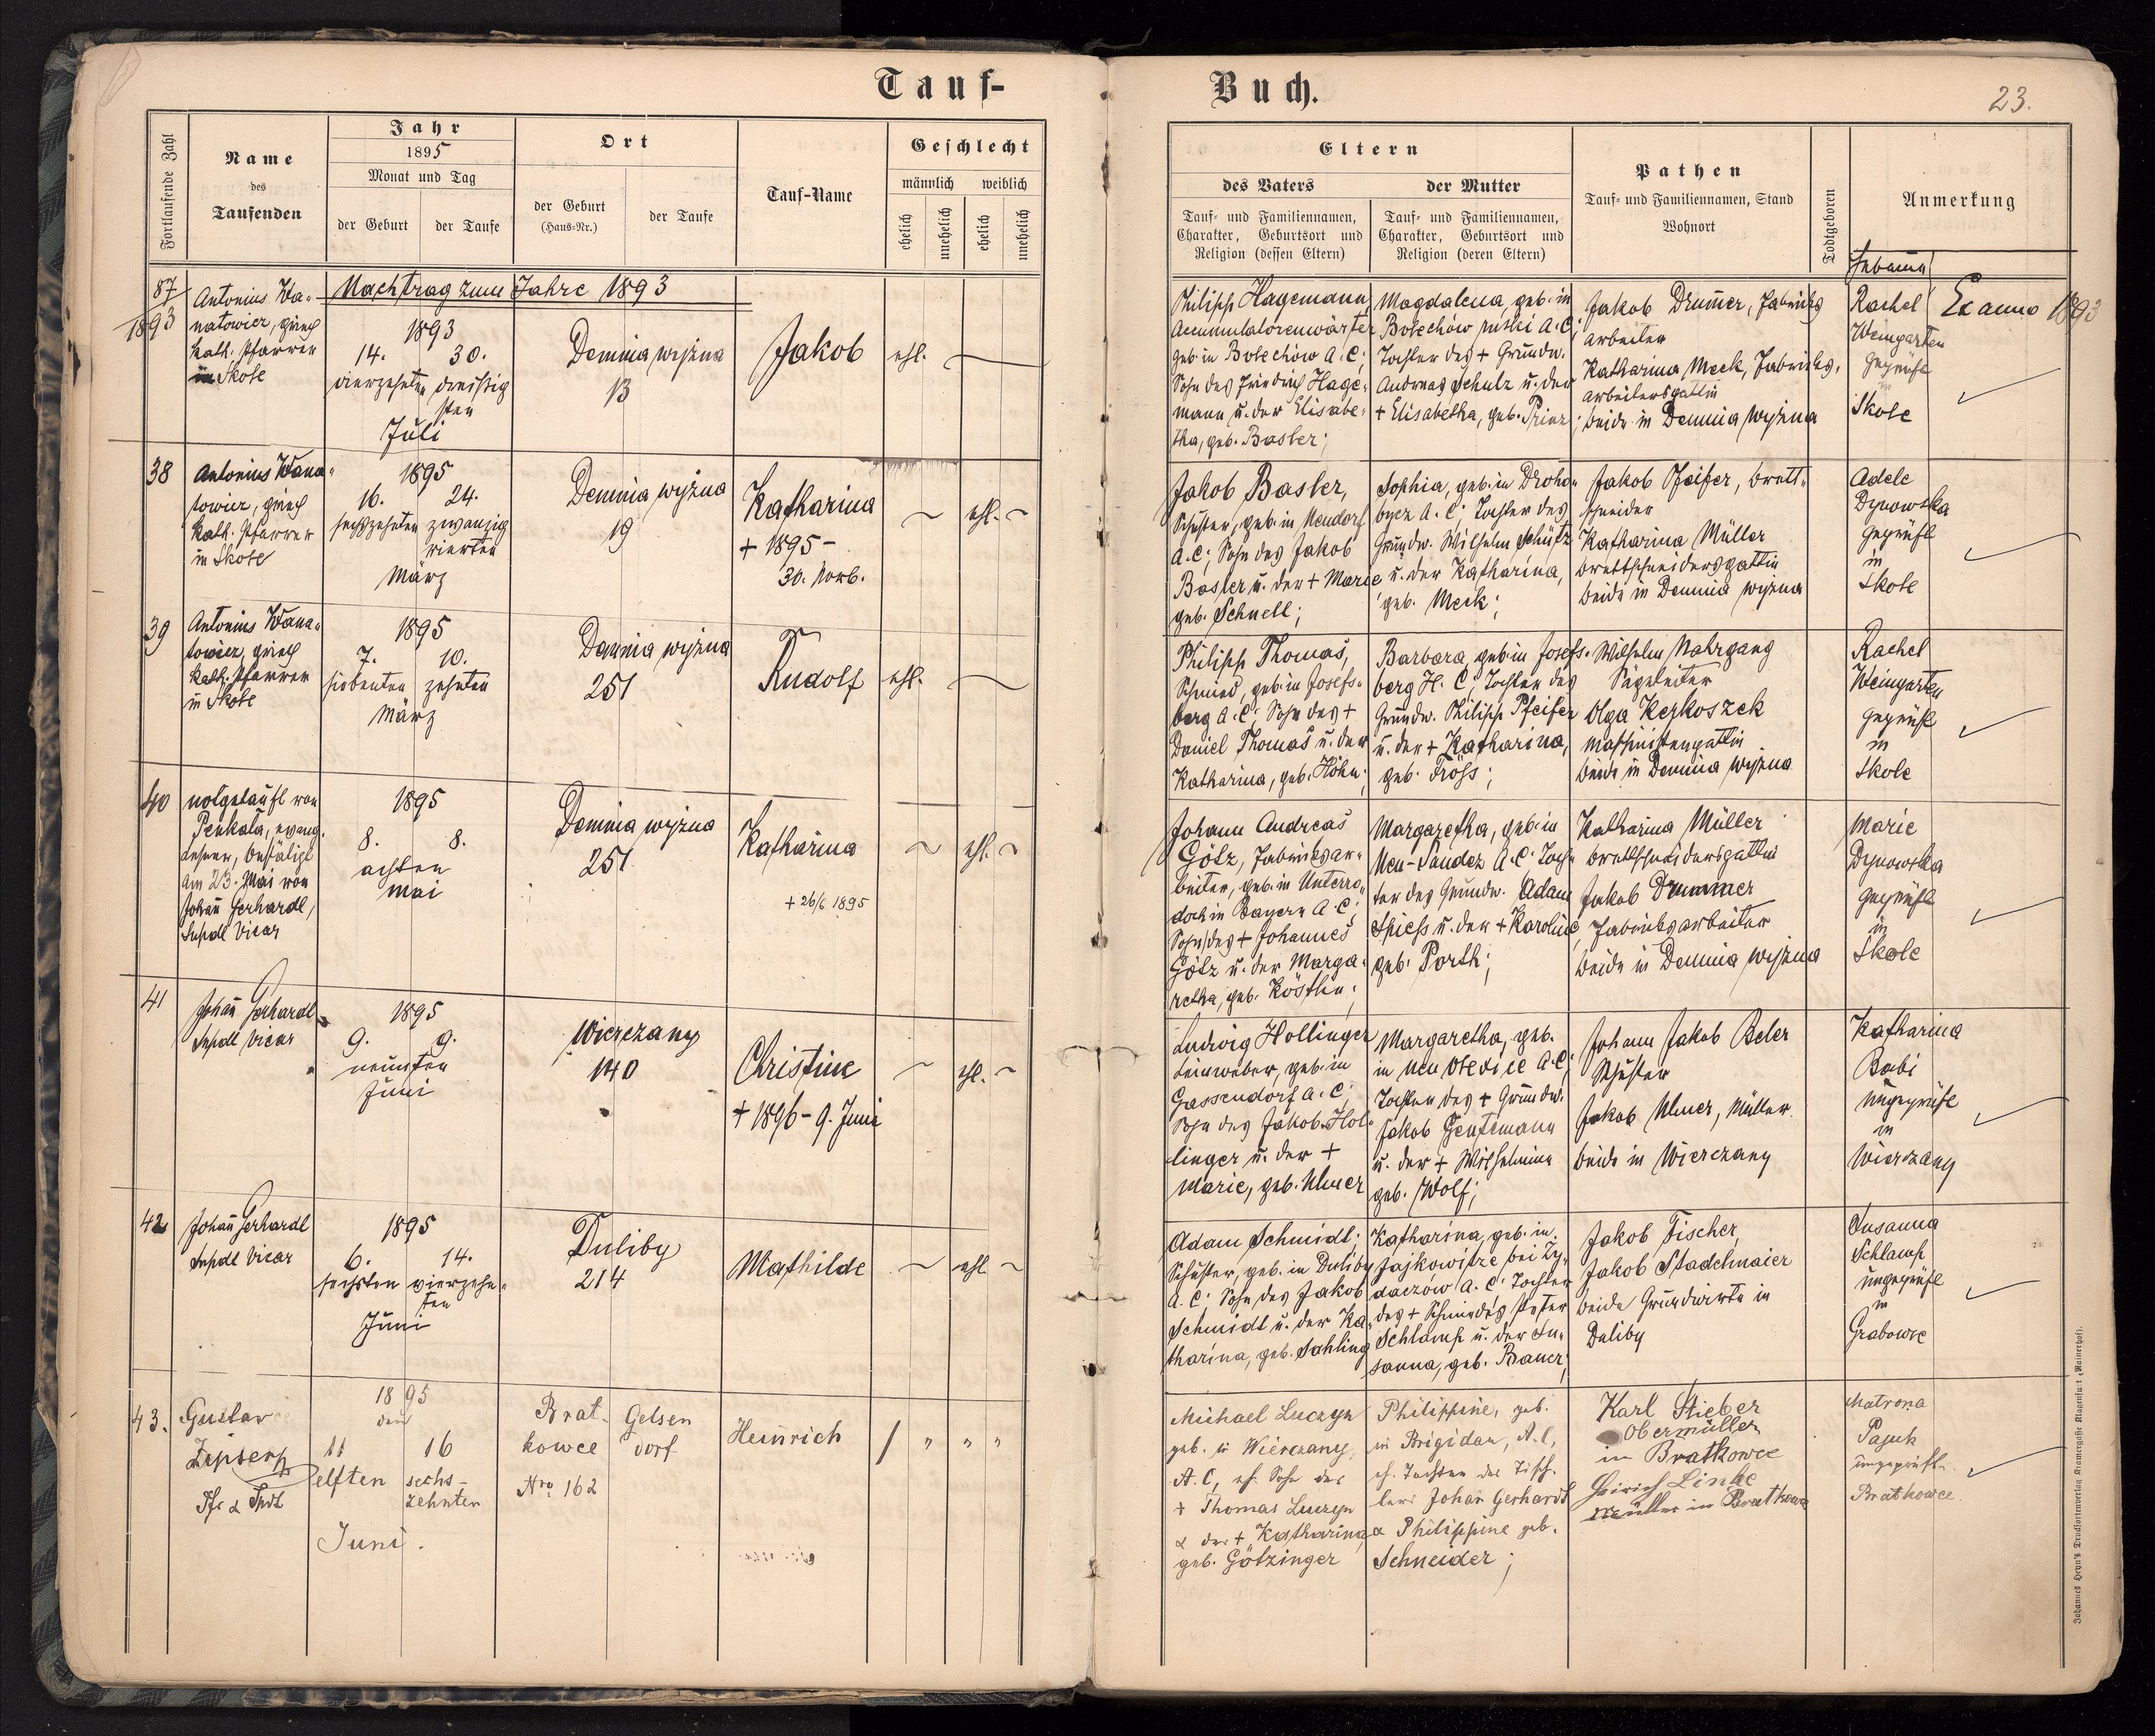 Tauf-
Buch.
23.
Fortlaufende Zahl
Name
des
Taufenden
Jahr
1895
Monat und Tag
der Geburt
der Taufe
Ort
der Geburt
(Haus-Nr.)
der Taufe
Tauf-Name
Geschlecht
männlich
weiblich
ehelich
unehelich
ehelich
unehelich
Eltern
des Vaters
Tauf- und Familiennamen,
Charakter, Geburtsort und
Religion (dessen Eltern)
der Mutter
Tauf- und Familiennamen,
Charakter, Geburtsort und
Religion (deren Eltern)
Pathen
Tauf- und Familiennamen, Stand
Wohnort
Todtgeboren
Anmerkung
87/
1893
Nachtrag zum Jahre 1893
Antonius Wa-
natowicz, griech
kath. Pfarrer
in Skole
1893
14. 30.
vierzehnten dreißig
sten
Juli
Demnia wyżna
13
Jakob
ehl.
Philipp Hagemann,
Accumulatorenwärter
geb. in Bolechów A.C;
Sohn des Friedrich Hage-
mann u. der Elisabe-
tha, geb. Basler;
Magdalena, geb. in
Bolechów ruski A.C;
Tochter des + Grundw.
Andreas Schulz u. der
+ Elisabetha, geb. Prinz;
Jakob Drumer, Fabriks
arbeiter
Katharina Meck, Fabriks-
arbeitersgattin
beide in Demnia wyżna
Rachel
Weingarten
geprüft
in
Skole
Ex anno 1893
38
Antonius Wana-
towicz, griech
kath. Pfarrer
in Skole
1895
16. 24.
sechszehnten zwanzig
vierten
März
Demnia wyżna
19
Katharina
+ 1895 -
30. Novb.
ehl.
Jakob Basler,
Schuster, geb. in Neudorf
A.C; Sohn des Jakob
Basler u. der + Marie
geb. Schnell;
Sophia, geb. in Droho-
bycz A.C; Tochter des
Grundw. Wilhelm Schütz
u. der Katharina,
geb. Meck;
Jakob Pfeifer, Brett-
schneider
Katharina Müller
Brettschneidersgattin
beide in Demnia wyżna
Adele
Dynowska
geprüft
in
Skole
39
Antonius Wana-
towicz, griech
kath. Pfarrer
in Skole
1895
7. 10.
siebenten zehnten
März
Demnia wyżna
251
Rudolf
ehl.
Philipp Thomas,
Schmied, geb. in Josefs-
berg A.C; Sohn des +
Daniel Thomas u. der
Katharina, geb. Höhn;
Barbara, geb. in Josefs-
berg H.C; Tochter des
Grundw. Philipp Pfeifer
u. der + Katharina,
geb. Fröss;
Wilhelm Nahrgang
Sägeleiter
Olga Kerkoszek
Maschinistengattin
beide in Demnia wyżna
Rachel
Weingarten
geprüft
in
Skole
40
notgetauft von
Penkala, evang.
Lehrer, bestätigt
am 23. Mai von
Johañ Gerhardt,
Supdl Vicar
1895
8. 8.
achten
Mai
Demnia wyżna
251
Katharina
+ 26/6 1895
ehl.
Johann Andreas
Götz, Fabriksar-
beiter, geb. in Unterro-
doch in Bayern A.C;
Sohn des + Johannes
Götz u. der Marga-
retha, geb. Köstlin;
Margaretha, geb. in
Neu-Sandez A.C; Toch-
ter des Grundw. Adam
Spiess u. der + Karoline,
geb. Porth;
Katharina Müller
Brettschneidersgattin
Jakob Drummer
Fabriksarbeiter
beide in Demnia wyżna
Marie
Dynowska
geprüft
in
Skole
41
Johañ Gerhardt
Supdl Vicar
1895
9. 9.
neunten
Juni
Wierczany
140
Christine
+ 1896 - 9. Juni
ehl.
Ludwig Hollinger
Leinweber, geb. in
Gassendorf A.C;
Sohn des Jakob Hol-
linger u. der +
Marie, geb. Ulmer
Margaretha, geb.
in Neu Olexice A.C;
Tochter des + Grundw.
Jakob Gentemann
u. der + Wilhelmine
geb. Wolf;
Johann Jakob Beler
Schuster
Jakob Ulmer, Müller
beide in Wierczany
Katharina
Babi
ungeprüft
in
Wierczany
42
Johañ Gerhardt
Supdl Vicar
1895
6. 14.
sechsten vierzehn-
ten
Juni
Duliby
214
Mathilde
ehl
Adam Schmidt;
Schuster, geb. in Duliby
A.C; Sohn des Jakob
Schmidt u. der Ka-
tharina, geb. Sahling
Katharina, geb. in
Jajkowitze bei Zy-
daczów A.C; Tochter
des + Schmiedes Peter
Schlamp u. der Su-
sanna, geb. Brauer;
Jakob Fischer,
Jakob Stadelmaier
beide Grundwirte in
Duliby
Susanna
Schlamp
ungeprüft
in
Grabowce
43.
Gustav
Zipser
Pfr & Supdt
1895
den
11 16
elften sechs-
zehnten
Juni.
Brat-
kowce
Nro 162
Gelsen
dorf
Heinrich
/ " " "
Michael Luczyn
geb. in Wierczany,
A.C, eh. Sohn des
+ Thomas Luczyn
& der + Katharina
geb. Götzinger
Philippine, geb.
in Brigidau, A.C,
eh. Tochter des Tisch-
lers Johañ Gerhardt
& Philippine geb.
Schneider;
Karl Stieber
Obermüller
in Bratkowce
Heinrich Linke
Müller in Bratkowce
Matrona
Pasuk
ungeprüft
Bratkowce